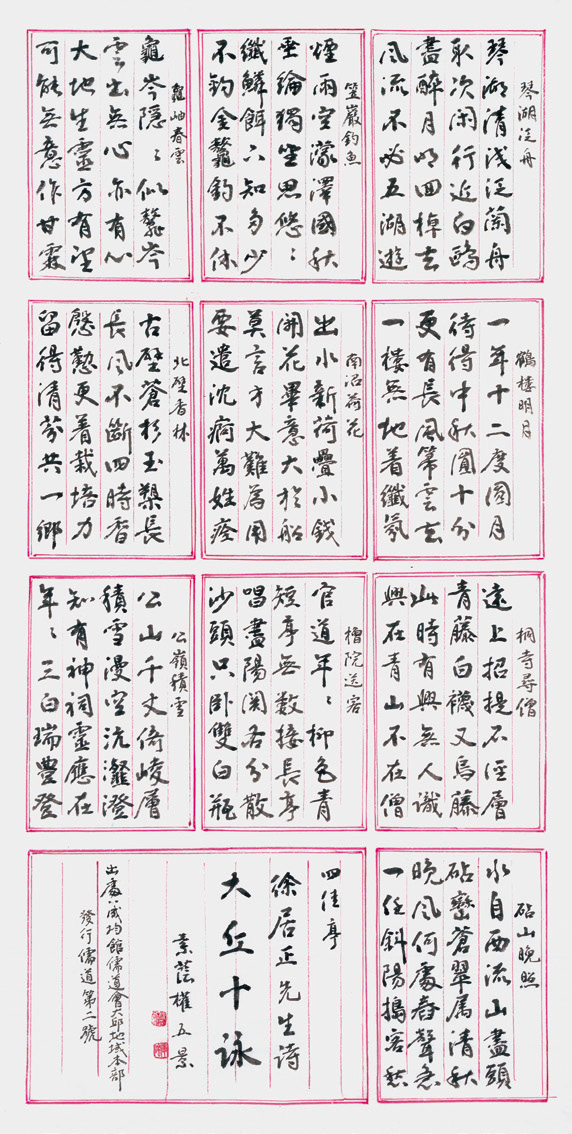 琴湖泛舟
琴湖清浅泛蘭舟
取次閑行近白鷗
盡醉月明回棹去
風流不必五湖遊
笠巖釣魚
煙雨空濛澤國秋
垂綸獨坐思悠〻
纖鱗餌下知多少
不釣金鼇釣不休
龜岫春雲
龜岑隱〻似鼇岑
雲出無心亦有心
大地生靈方有望
可能無意作甘霖
鶴樓明月
一年十二度圓月
待得中秋圓十分
更有長風箒雲去
一樓無地着纖氛
南沼荷花
出水新荷疊小錢
開花畢竟大於船
莫言才大難爲用
要遣沈痾萬姓痊
北壁香林
古壁蒼杉玉槊長
長風不斷四時香
慇懃更着栽培力
留得清芬共一鄉
桐寺尋僧
遠上招提石徑層
青藤白襪又烏藤
此時有興無人識
興在青山不在僧
櫓院送客
官道年〻柳色青
短亭無數接長亭
唱盡陽關各分散
沙頭只臥雙白瓶
公嶺積雪
公山千丈倚崚層
積雪漫空沆瀣澄
知有神祠靈應在
年〻三白瑞豊登
砧山晚照
水自西流山盡頭
砧巒蒼翠属清秋
晚風何處舂聲急
一任斜陽搗客愁
四佳亭
徐居正先生詩
大丘十詠
權五景
出處 成均館儒道會大邱地域本部
發行儒道第二號